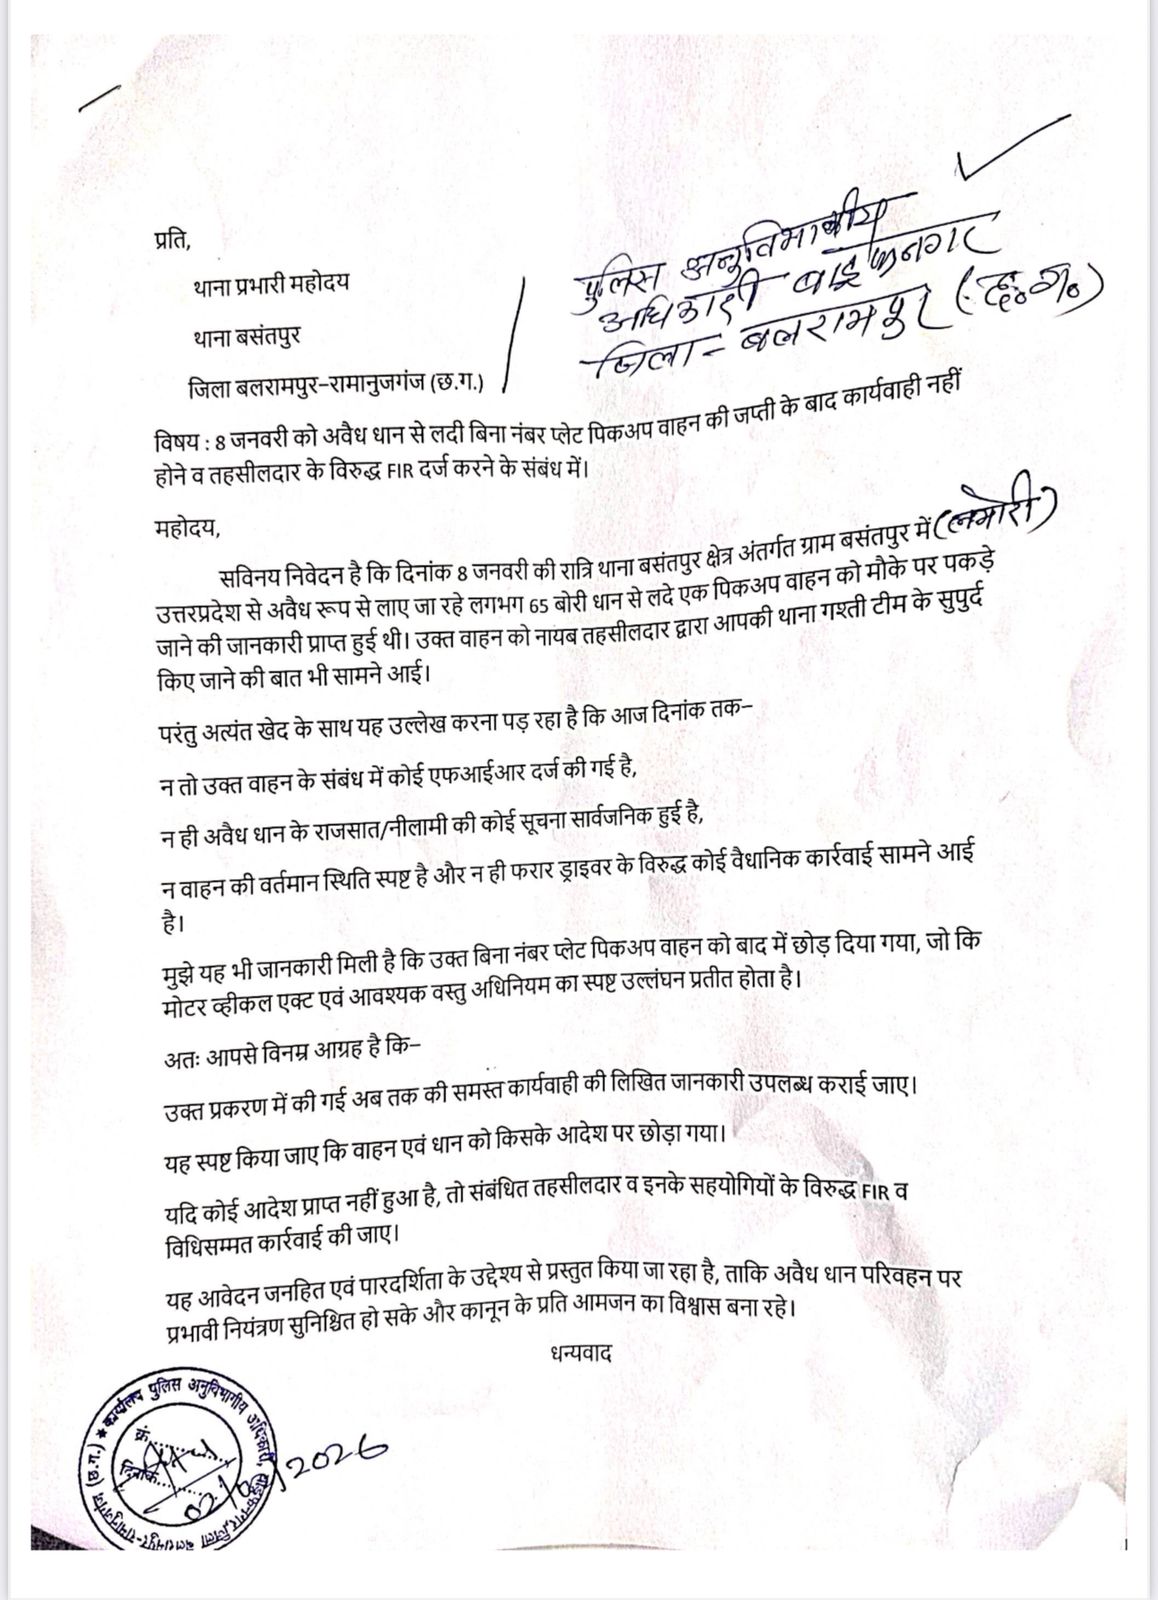 प्रति,
थाना प्रभारी महोदय
थाना बसंतपुर
जिला बलरामपुर–रामानुजगंज (छ.ग.)
पुलिस अनुविभागीय
अधिकारी वाड्रफनगर
जिला - बलरामपुर (छ.ग.)
विषय : 8 जनवरी को अवैध धान से लदी बिना नंबर प्लेट पिकअप वाहन की जप्ती के बाद कार्यवाही नहीं
होने व तहसीलदार के विरुद्ध FIR दर्ज करने के संबंध में।
महोदय,
सविनय निवेदन है कि दिनांक 8 जनवरी की रात्रि थाना बसंतपुर क्षेत्र अंतर्गत ग्राम बसंतपुर में
उत्तरप्रदेश से अवैध रूप से लाए जा रहे लगभग 65 बोरी धान से लदे एक पिकअप वाहन को मौके पर पकड़े
जाने की जानकारी प्राप्त हुई थी। उक्त वाहन को नायब तहसीलदार द्वारा आपकी थाना गश्ती टीम के सुपुर्द
किए जाने की बात भी सामने आई।
परंतु अत्यंत खेद के साथ यह उल्लेख करना पड़ रहा है कि आज दिनांक तक–
न तो उक्त वाहन के संबंध में कोई एफआईआर दर्ज की गई है,
न ही अवैध धान के राजसात/नीलामी की कोई सूचना सार्वजनिक हुई है,
न वाहन की वर्तमान स्थिति स्पष्ट है और न ही फरार ड्राइवर के विरुद्ध कोई वैधानिक कार्रवाई सामने आई
है।
मुझे यह भी जानकारी मिली है कि उक्त बिना नंबर प्लेट पिकअप वाहन को बाद में छोड़ दिया गया, जो कि
मोटर व्हीकल एक्ट एवं आवश्यक वस्तु अधिनियम का स्पष्ट उल्लंघन प्रतीत होता है।
अतः आपसे विनम्र आग्रह है कि–
उक्त प्रकरण में की गई अब तक की समस्त कार्यवाही की लिखित जानकारी उपलब्ध कराई जाए।
यह स्पष्ट किया जाए कि वाहन एवं धान को किसके आदेश पर छोड़ा गया।
यदि कोई आदेश प्राप्त नहीं हुआ है, तो संबंधित तहसीलदार व इनके सहयोगियों के विरुद्ध FIR व
विधिसम्मत कार्रवाई की जाए।
यह आवेदन जनहित एवं पारदर्शिता के उद्देश्य से प्रस्तुत किया जा रहा है, ताकि अवैध धान परिवहन पर
प्रभावी नियंत्रण सुनिश्चित हो सके और कानून के प्रति आमजन का विश्वास बना रहे।
धन्यवाद
कार्यालय पुलिस अनुविभागीय अधिकारी, वाड्रफनगर, जिला बलरामपुर-रामानुजगंज (छ.ग.)
क्रं.........
दिनांक.........
2026